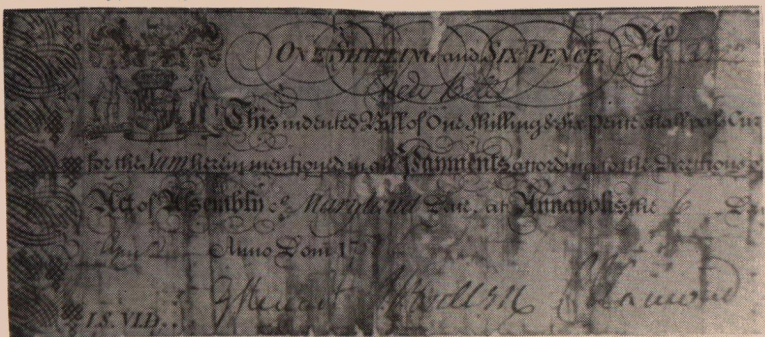 ONE SHILLING and SIX PENCE. No
New Bill
This indented Bill of One Shilling & Six pence shall pass Cur
for the Sum herein mentioned in all Payments according to the Directions o
Act of Assembly of Maryland Dat. at Annapolis the 6 Day
Anno Dom 17
I.S. VI.D.